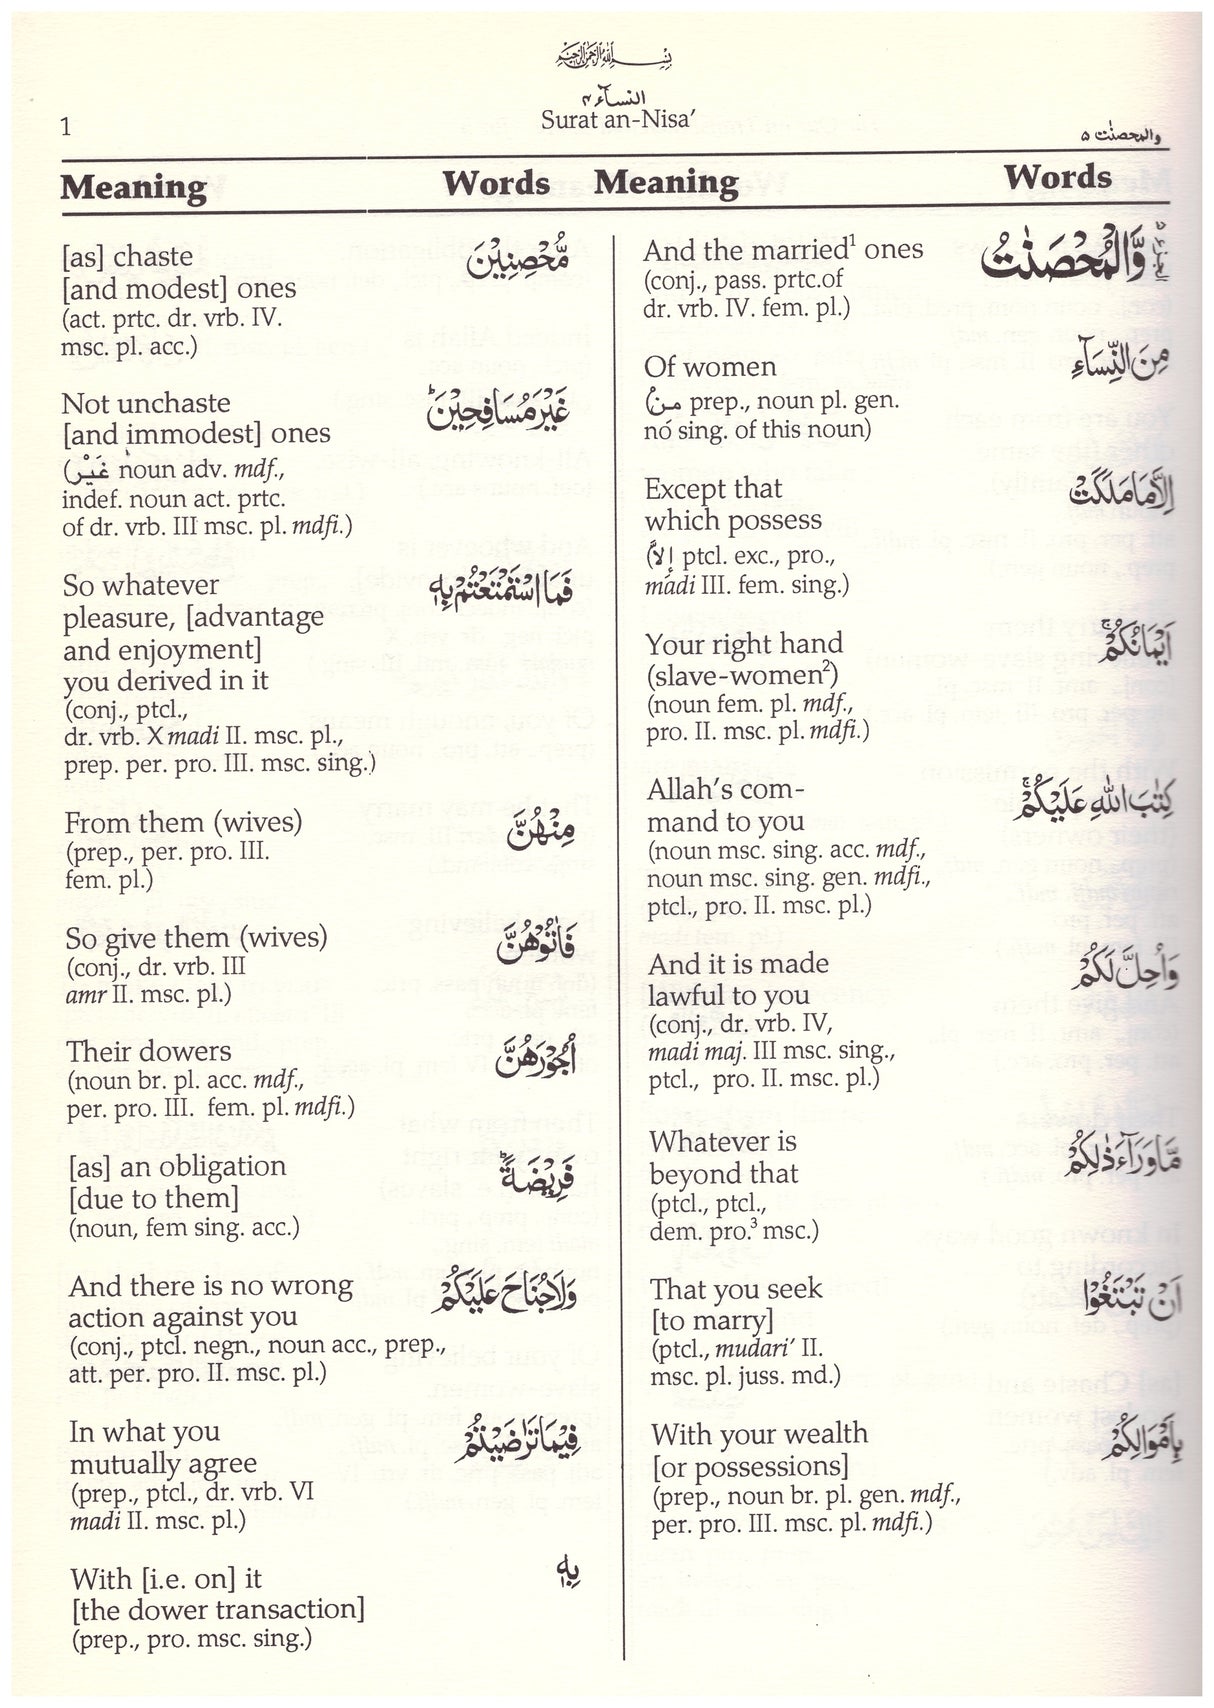 بِسْمِ اللهِ الرَّحْمٰنِ الرَّحِيْمِ
النسآء ٤
1
Surat an-Nisa’
والمحصنٰت ٥
Meaning Words Meaning Words
And the married¹ ones وَّالْمُحْصَنٰتُ
(conj., pass. prtc.of
dr. vrb. IV. fem. pl.)
Of women مِنَ النِّسَآءِ
(مِنْ prep., noun pl. gen.
no sing. of this noun)
Except that اِلَّا مَا مَلَكَتْ
which possess
(إِلاَّ ptcl. exc., pro.,
madi III. fem. sing.)
Your right hand اَيْمَانُكُمْ ۚ
(slave-women²)
(noun fem. pl. mdf.,
pro. II. msc. pl. mdfi.)
Allah’s com- كِتٰبَ اللّٰهِ عَلَيْكُمْ ۚ
mand to you
(noun msc. sing. acc. mdf.,
noun msc. sing. gen. mdfi.,
ptcl., pro. II. msc. pl.)
And it is made وَاُحِلَّ لَكُمْ
lawful to you
(conj., dr. vrb. IV,
madi maj. III msc. sing.,
ptcl., pro. II. msc. pl.)
Whatever is مَّا وَرَآءَ ذٰلِكُمْ
beyond that
(ptcl., ptcl.,
dem. pro.³ msc.)
That you seek اَنْ تَبْتَغُوْا
[to marry]
(ptcl., mudari’ II.
msc. pl. juss. md.)
With your wealth بِاَمْوَالِكُمْ
[or possessions]
(prep., noun br. pl. gen. mdf.,
per. pro. III. msc. pl. mdfi.)
[as] chaste مُّحْصِنِيْنَ
[and modest] ones
(act. prtc. dr. vrb. IV.
msc. pl. acc.)
Not unchaste غَيْرَ مُسَافِحِيْنَ ؕ
[and immodest] ones
(غَيْرَ noun adv. mdf.,
indef. noun act. prtc.
of dr. vrb. III msc. pl. mdfi.)
So whatever فَمَا اسْتَمْتَعْتُمْ بِهٖ
pleasure, [advantage
and enjoyment]
you derived in it
(conj., ptcl.,
dr. vrb. X madi II. msc. pl.,
prep. per. pro. III. msc. sing.)
From them (wives) مِنْهُنَّ
(prep., per. pro. III.
fem. pl.)
So give them (wives) فَاٰتُوْهُنَّ
(conj., dr. vrb. III
amr II. msc. pl.)
Their dowers اُجُوْرَهُنَّ
(noun br. pl. acc. mdf.,
per. pro. III. fem. pl. mdfi.)
[as] an obligation فَرِيْضَةً ؕ
[due to them]
(noun, fem sing. acc.)
And there is no wrong وَلَا جُنَاحَ عَلَيْكُمْ
action against you
(conj., ptcl. negn., noun acc., prep.,
att. per. pro. II. msc. pl.)
In what you فِيْمَا تَرَاضَيْتُمْ
mutually agree
(prep., ptcl., dr. vrb. VI
madi II. msc. pl.)
With [i.e. on] it بِهٖ
[the dower transaction]
(prep., pro. msc. sing.)